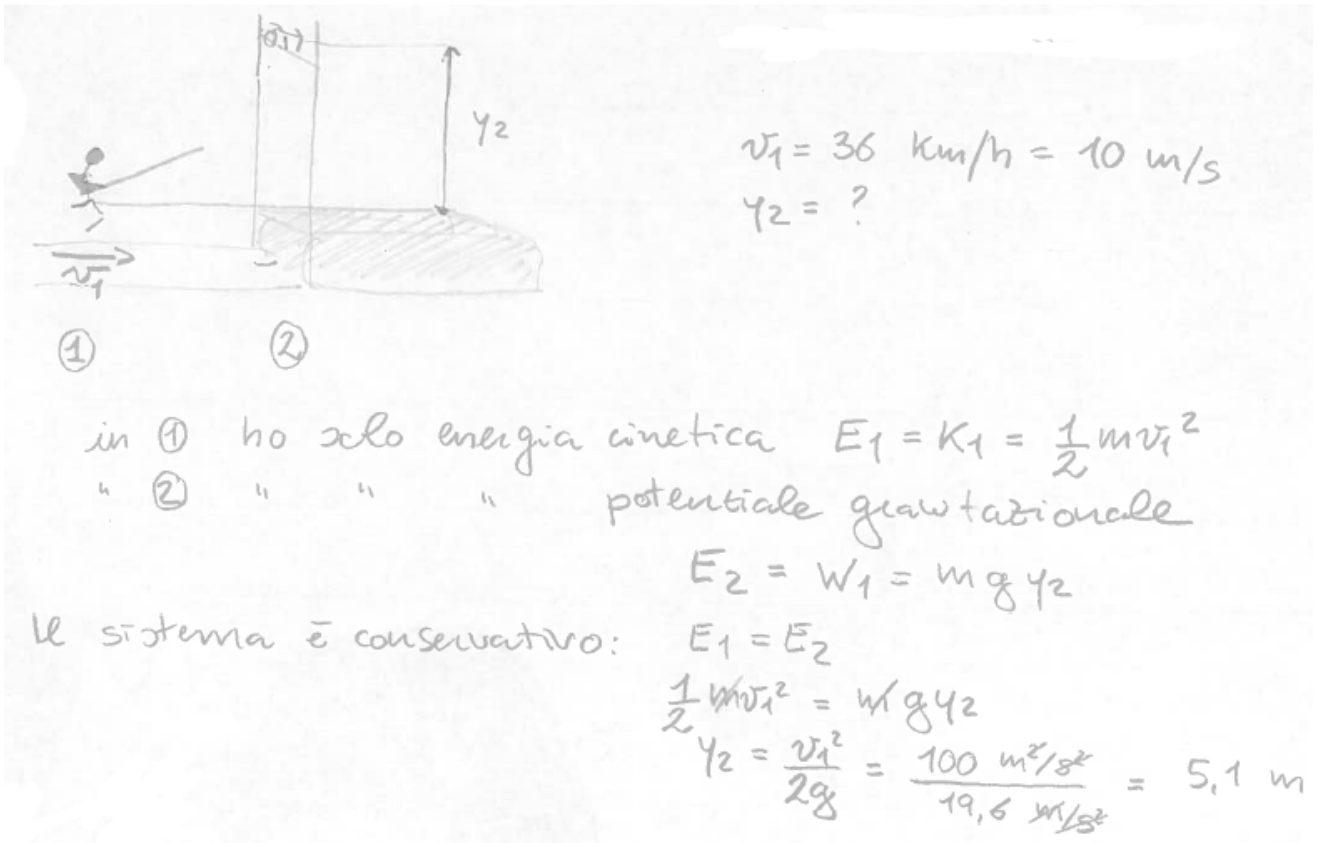 y2
v1 = 36 Km/h = 10 m/s
y2 = ?
v1
① ②
in ① ho solo energia cinetica E1 = K1 = 1/2 mv1²
" ② " " " potentiale gravitazionale
E2 = W1 = m g y2
Il sistema è conservativo: E1 = E2
1/2 mv1² = m g y2
y2 = v1²/2g = 100 m²/s² / 19,6 m/s² = 5,1 m